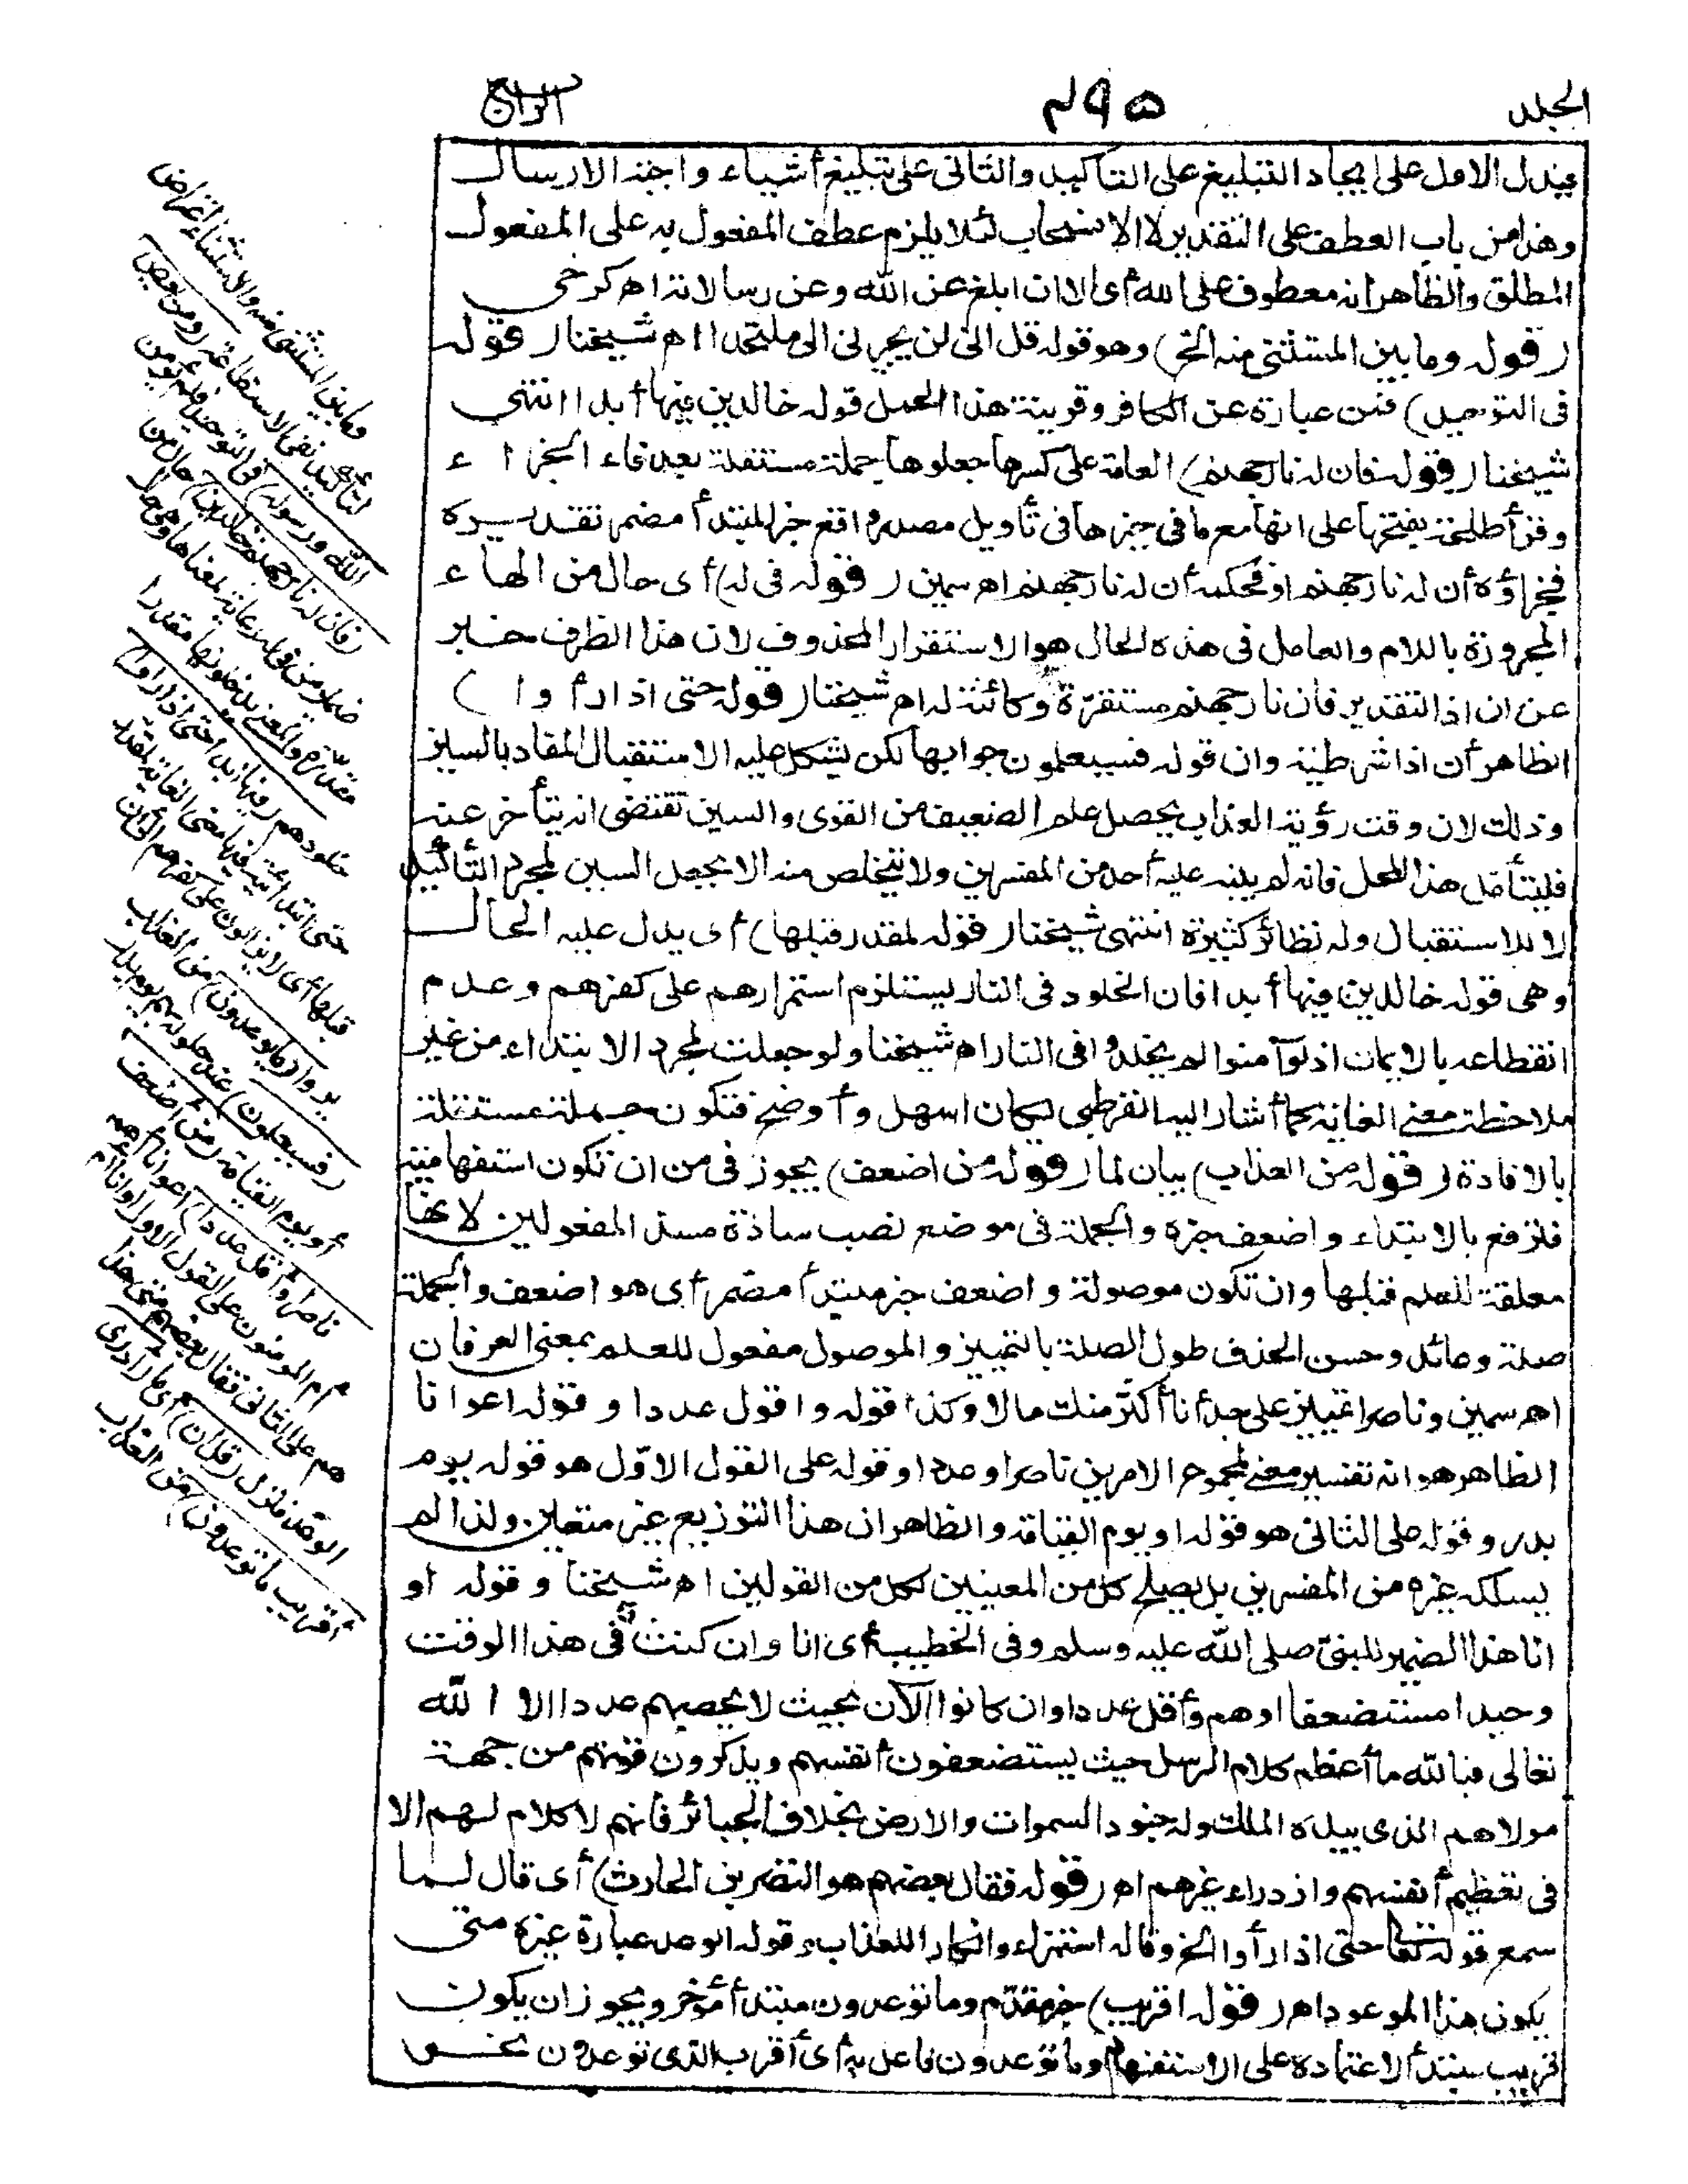 الجلد ٤٩٥ الرابع
فيدل الاول على ايجاد التبليغ على التأكيد والثانى على تبليغ أشياء واجبة الارسال
وهذا من باب العطف على التقدير لا الانسحاب لئلا يلزم عطف المفعول به على المفعول
المطلق والظاهر انه معطوف على الله أى الا ان ابلغ عن الله وعن رسالاته اه كرخى
(قوله وما بين المستثنى منه الخ) وهو قوله قل انى لن يجيرنى الى ملتحدا اه شيخنا (قوله
فى التوحيد) فمن عبارة عن الكافر وقرينة هذا الحمل قوله خالدين فيها أبدا انتهى
شيخنا (قوله فان له نار جهنم) العامة على كسرها جعلوها جملة مستقلة بعد فاء الجزاء
وقرأ طلحة بفتحها على انها مع ما فى حيزها فى تأويل مصدر واقع خبر المبتدأ مضمر تقديره
فجزاؤه أن له نار جهنم او فحكمه أن له نار جهنم اه سمين (قوله فى له) أى حال من الهاء
المجرورة باللام والعامل فى هذه الحال هو الاستقرار المحذوف لان هذا الظرف خبر
عن ان اذ التقدير فان نار جهنم مستقرة وكائنة له اه شيخنا (قوله حتى اذا رأوا)
الظاهر أن اذا شرطية وان قوله فسيعلمون جوابها لكن يشكل عليه الاستقبال المفاد بالسين
وذلك لان وقت رؤية العذاب يحصل علم الضعيف من القوى والسين تقتضى انه يتأخر عنه
فليتأمل هذا المحل فانه لم ينبه عليه أحد من المفسرين ولا يتخلص منه الا بجعل السين لمجرد التأكيد
لا للاستقبال وله نظائر كثيرة انتهى شيخنا (قوله لمقدر قبلها) أى يدل عليه الحال
وهى قوله خالدين فيها أبدا فان الخلود فى النار يستلزم استمرارهم على كفرهم وعدم
انقطاعه بالايمان اذ لو آمنوا لم يخلدوا فى النار اه شيخنا ولو جعلت لمجرد الابتداء من غير
ملاحظة معنى الغاية كما أشار اليه القرطبى لكان اسهل وأوضح فتكون جملة مستقلة
بالافادة (قوله من العذاب) بيان لما (قوله من اضعف) يجوز فى من ان تكون استفهامية
فترفع بالابتداء واضعف خبره والجملة فى موضع نصب سادة مسد المفعولين لانها
معلقة للعلم قبلها وان تكون موصولة واضعف خبر مبتدأ مضمر أى هو اضعف والجملة
صلة وعائد وحسن الحذف طول الصلة بالتمييز والموصول مفعول للعلم بمعنى العرفان
اه سمين وناصرا تمييز على حد أنا أكثر منك مالا وكذا قوله واقول عددا وقوله اعوانا
الظاهر هو انه تفسير معنى لمجموع الامرين ناصرا وعددا وقوله على القول الاوّل هو قوله يوم
بدر وقوله على الثانى هو قوله او يوم القيامة والظاهر ان هذا التوزيع غير متعين ولذا لم
يسلكه غيره من المفسرين بل يصلح كل من المعنيين لكل من القولين اه شيخنا وقوله او
انا هذا الضمير للنبىّ صلى الله عليه وسلم وفى الخطيب أى انا وان كنت فى هذا الوقت
وحيدا مستضعفا او هم وأقل عددا وان كانوا الآن بحيث لا يحصيهم عددا الا الله
تعالى فيا لله ما أعظم كلام الرسل حيث يستضعفون أنفسهم ويذكرون قوتهم من جهة
مولاهم الذى بيده الملك وله جنود السموات والارض بخلاف الجبابرة فانهم لا كلام لهم الا
فى تعظيم أنفسهم وازدراء غيرهم اه (قوله فقال بعضهم هو النضر بن الحارث) أى قال لما
سمع قوله تعالى حتى اذا رأوا الخ وقاله استهزاء وانكارا للعذاب وقوله الوعد عبارة غيره متى
يكون هذا الموعود اه (قوله اقريب) خبر مقدّم وما توعدون مبتدأ مؤخر ويجوز ان يكون
قريب مبتدأ لاعتماده على الاستفهام وما توعدون فاعل به أى أقرب الذى توعدون نحو
وما بين المستثنى منه والاستثناء اعتراض
لتأكيد نفى الاستطاعة (ومن يعص
الله ورسوله) فى التوحيد فلم يؤمن
(فان له نار جهنم خالدين) حال من
ضمير من فى له رعاية لمعناها وهى حال
مقدّرة والمعنى يدخلونها مقدرا
خلودهم (فيها أبدا حتى اذا رأوا)
حتى ابتدائية فيها معنى الغاية لمقدر
قبلها أى لا يزالون على كفرهم الى ان
يروا (ما يوعدون) من العذاب
(فسيعلمون) عند حلوله بهم يوم بدر
أو يوم القيامة (من أضعف
ناصرا وأقل عددا) أعوانا أهم
أم المؤمنون على القول الاول أو انا أم
هم على الثانى فقال بعضهم متى هذا
الوعد فنزل (قل ان) أى ما (أدرى
أقريب ما توعدون) من العذاب